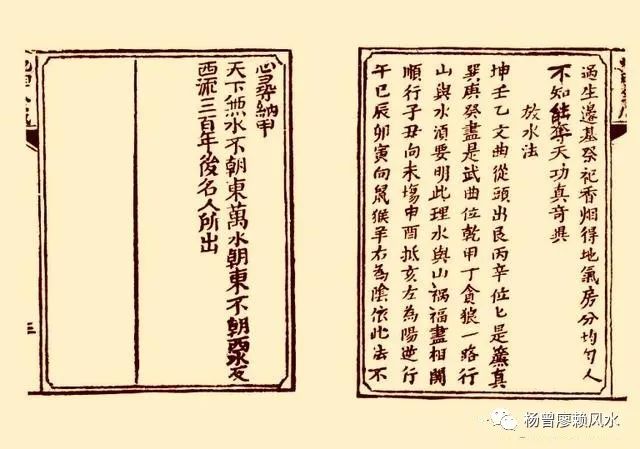 過生邊基祭祀香烟得地氣房分均匀人
不知能奪天功真奇異
放水法
坤壬乙文曲從頭出艮丙辛位匕是廉真
巽庚癸盡是武曲位乾甲丁貪狼一路行
山與水須要明此理水與山禍福盡相關
順行子丑向未塲申酉抵亥左為陽逆行
午巳辰卯寅向鼠猴辛右為陰依此法不
心尋納甲
天下無水不朝東萬水朝東不朝西水反
西流三百年後名人所出
三
杨曾廖赖风水